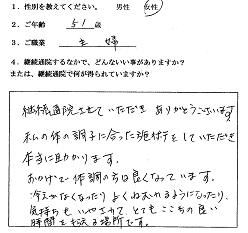 1．性別を教えてください。 男性 女性
2．ご年齢 51 歳
3．ご職業 主婦
4．継続通院するなかで、どんないい事がありますか？
または、継続通院で何が得られていますか？
継続通院させていただき ありがとうございます。
私の体の調子に合った施術をしていただき
本当に助かります。
おかげで体調の方は良くなっています。
冷えがなくなったり よくねむれるようになったり、
気持ちもいやされて、とてもここちの良い
時間を送る場所です。